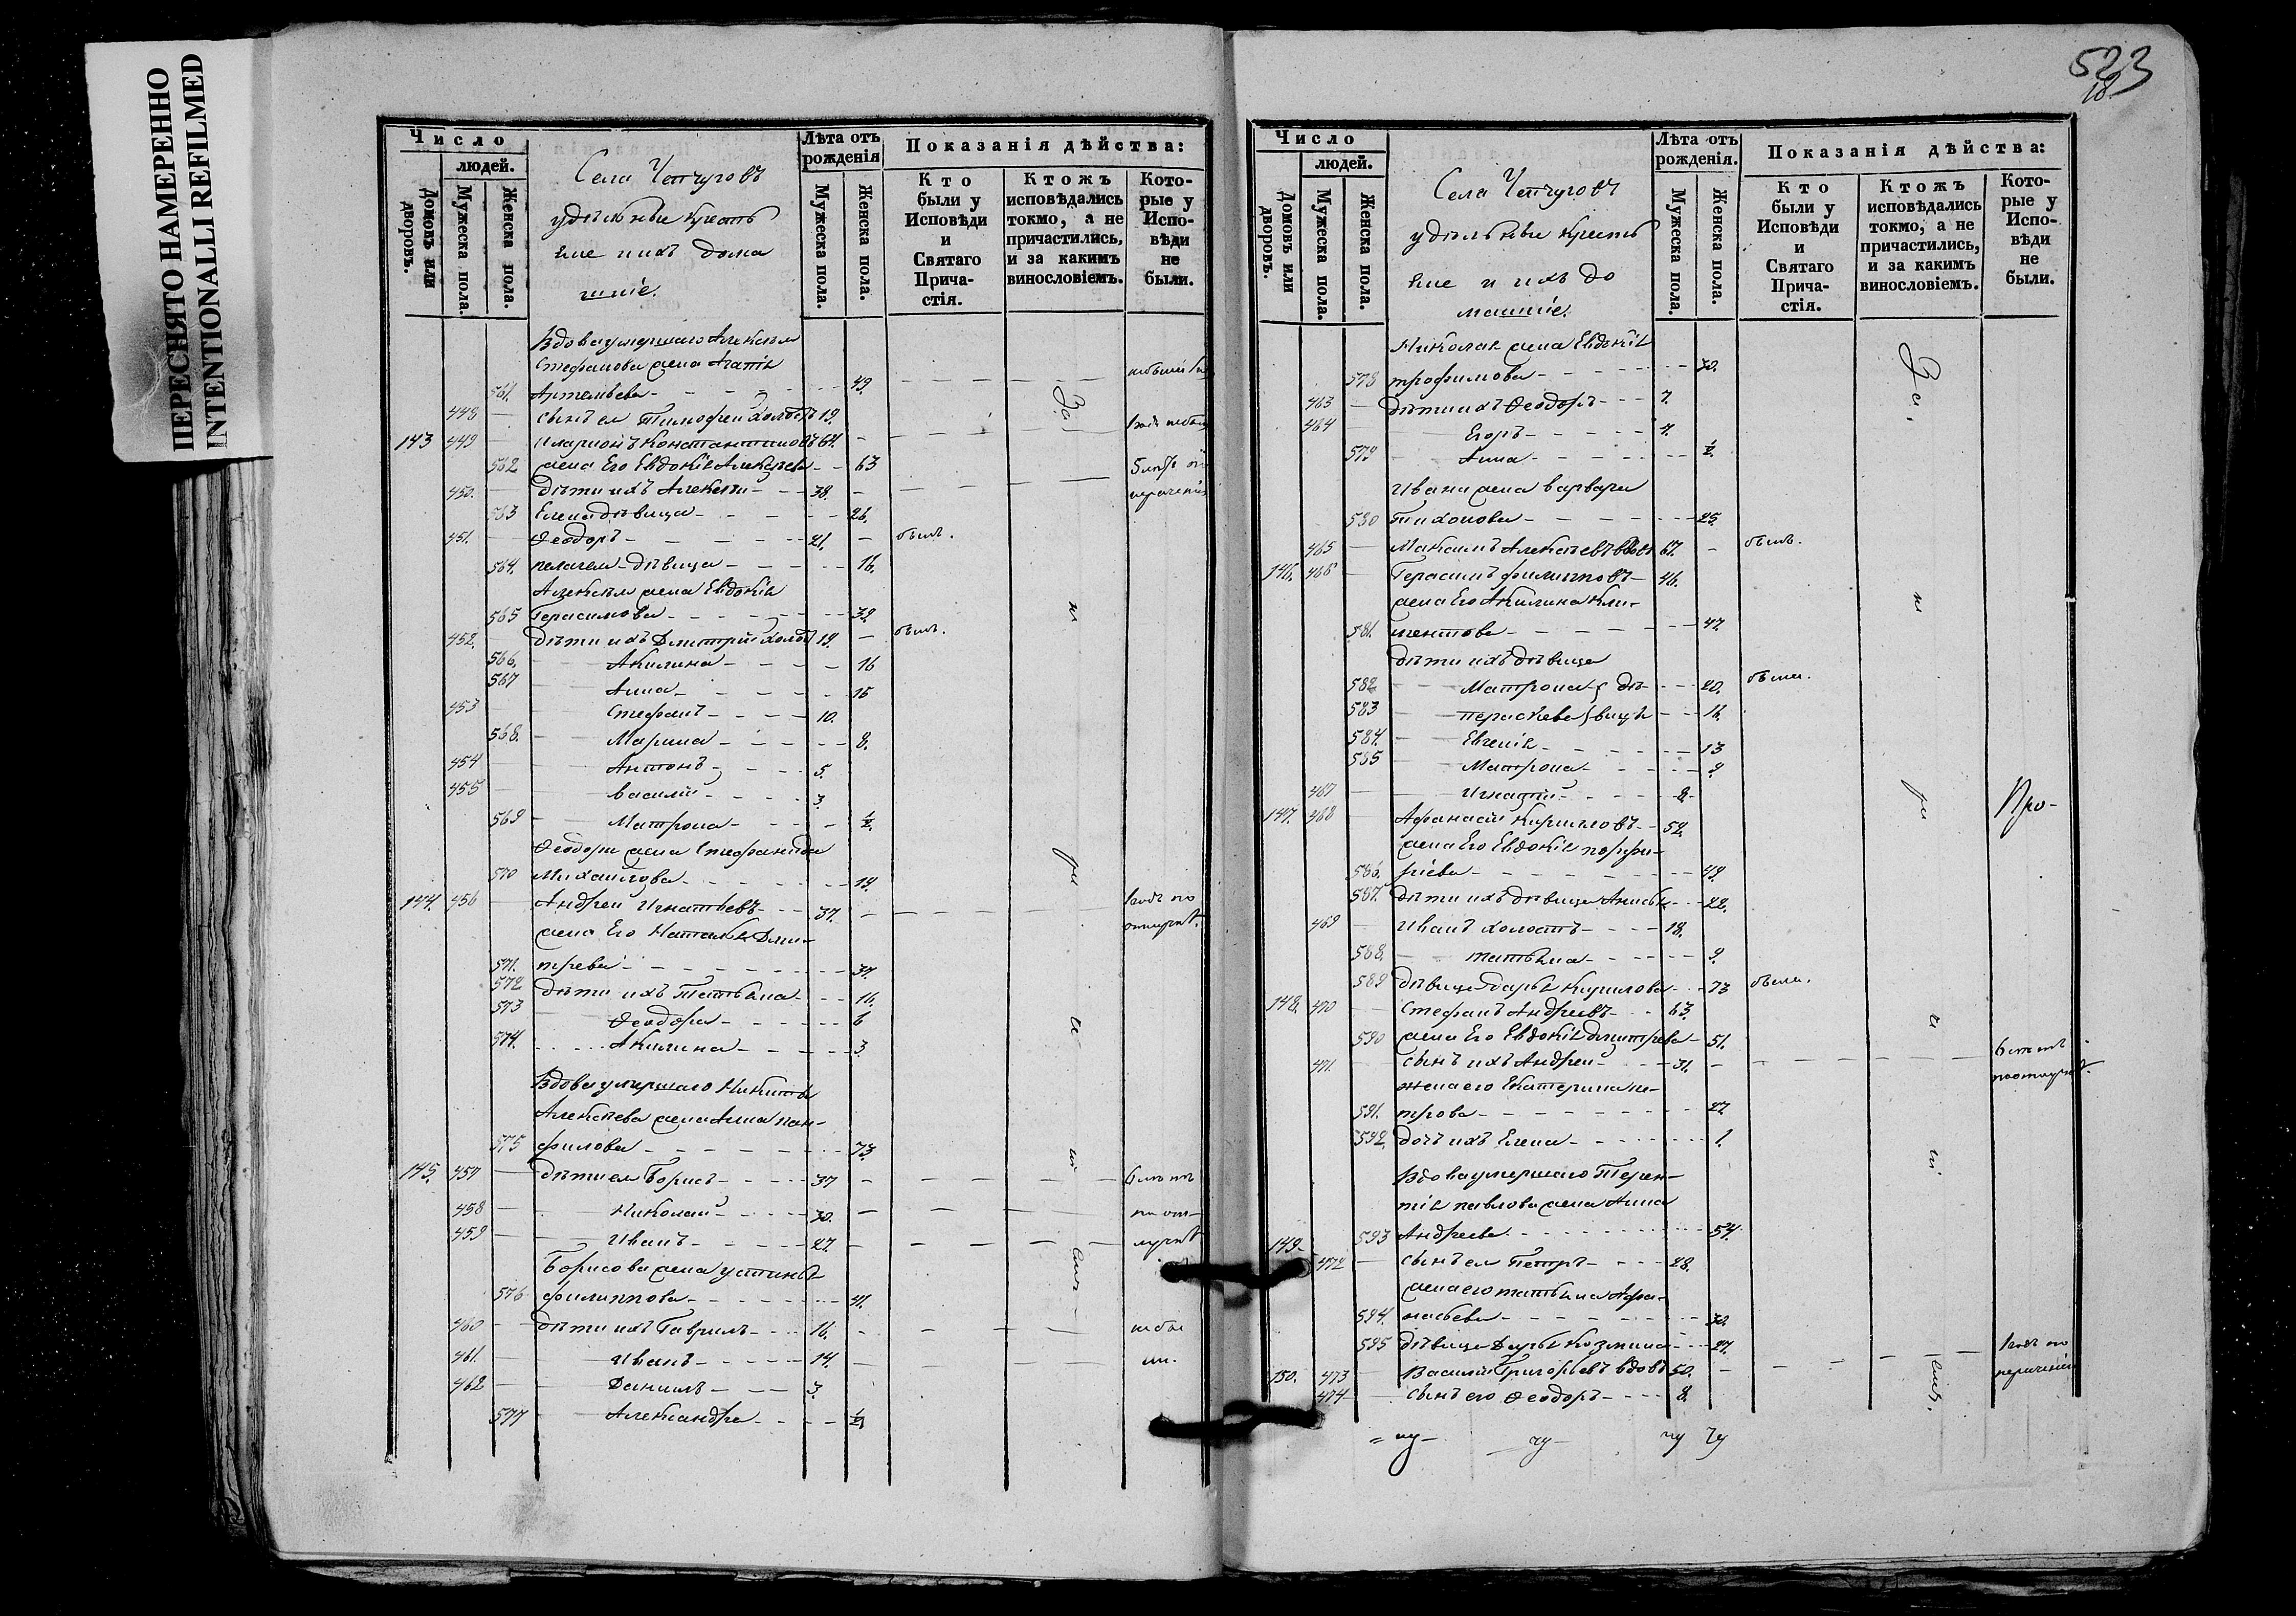 ПЕРЕСНЯТО НАМЕРЕННО
INTENTIONALLI REFILMED
Число
людей.
Домовъ или дворовъ.
Мужеска пола.
Женска пола.
Села Чепчуговъ
удѣльные кресть
яне и ихъ дома
шніе.
Лѣта отъ рожденія
Мужеска пола.
Женска пола.
Показанія дѣйства:
Кто были у Исповѣди и Святаго Прича-стія.
Ктожъ исповѣдались токмо, а не причастились, и за какимъ винословіемъ.
Кото-рые у Испо-вѣди не были.
Вдова умершаго Алексѣя
Стефанова жена Агапія
561. Артемьева 49.
448 сынъ ея Тимофей холостъ 19.
143 449 Иларіонъ Константиновъ 64.
562 жена Его Евдокія Алексѣева 63
450. дѣти ихъ Алексѣй 38.
563 Елена дѣвица 26.
451. Ѳеодоръ 21. былъ.
564. пелагея дѣвица 16.
Алексѣя жена Евдокія
565 Герасимова 39.
452. дѣти ихъ Дмитрій холостъ 19. былъ.
566. Акилина 16
567 Анна 15
453 Стефанъ 10.
568. Марина 8.
454 Антонъ 5.
455 василій 3.
569 Матрона 1/2.
Ѳеодора жена Стефанида
570 Михайлова 19.
144. 456 Андрей Игнатьевъ 37. 1 годъ по
отлучкѣ.
жена Его Наталья Дми-
571. трева 37.
572 дѣти ихъ Татьяна 16.
573 Ѳеодора 6
574. Акилина 3.
Вдова умершаго Никиты
Алексѣева жена Анна пан-
575 филова 73.
145. 457 дѣти ея Борисъ 37 6 лѣтъ
458 Николай 30. по от-
459 Иванъ 27. лучкѣ
Борисова жена устинья
576 филиппова 41.
460 дѣти ихъ Гаврилъ 16. не бы
461. Иванъ 14. ли.
462 Данилъ 3.
577 Александра 1/2
За
не
ра
ді
емъ
523
18.
Число
людей.
Домовъ или дворовъ.
Мужеска пола.
Женска пола.
Села Чепчуговъ
удѣльные кресть
яне и ихъ до
машніе.
Лѣта отъ рожденія.
Мужеска пола.
Женска пола.
Показанія дѣйства:
Кто были у Исповѣди и Святаго Прича-стія.
Ктожъ исповѣдались токмо, а не причастились, и за какимъ винословіемъ.
Кото-рые у Испо-вѣди не были.
Николая жена Евдокія
578 трофимова 30.
463 дѣти ихъ Ѳеодоръ 7.
464 Егоръ 4.
579 Анна 1/2.
Ивана жена варвара
580 Тихонова 25.
465 Максимъ Алексѣевъ вдовъ 67. былъ.
146. 466 Герасимъ филипповъ 46.
жена Его Акилина Кли-
581. ментова 47.
дѣти ихъ дѣвица
582 Матрона дѣ- 20. была.
583 параскева вицы 16.
584. Евгенія 13
585 Матрона 9
467 Игнатій 8
147. 468 Афанасій Кирилловъ 52.
жена Его Евдокія порфи-
586. ріева 49.
587. дѣти ихъ дѣвица Анисья 22.
469 Иванъ холостъ 18.
588. татьяна 9.
589 дѣвица дарья Кирилова 73 была.
148. 470 Стефанъ Андреевъ 63.
590 жена Его Евдокія дмитрева 51.
471. сынъ ихъ Андрей 31. 6 лѣтъ
по отлучкѣ.
жена его Екатерина пе-
591. трова 27
592 дочь ихъ Елена 1.
Вдова умершаго Терен-
тія павлова жена Анна
593 Андреева 54.
149. 472 сынъ ея Петръ 28.
жена его татьяна Афа-
594. насьева 30.
595 дѣвица Дарья Козмина 27.
150. 473 Василій Григорьевъ вдовъ 50. 1 годъ по
474 сынъ его Ѳеодоръ 8.
За
не
ра
ді
емъ.
Про-